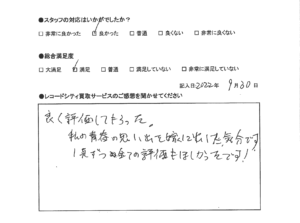 ●スタッフの対応はいかがでしたか？
□ 非常に良かった ☑ 良かった □ 普通 □ 良くない □ 非常に良くない
●総合満足度
□ 大満足 ☑ 満足 □ 普通 □ 満足していない □ 非常に満足していない
記入日 2022年 9月30日
●レコードシティ買取サービスのご感想を聞かせてください
良く評価してもらった。
私の青春の思い出を嫁に出した気分です!
1点ずつの全ての評価もほしかったです!